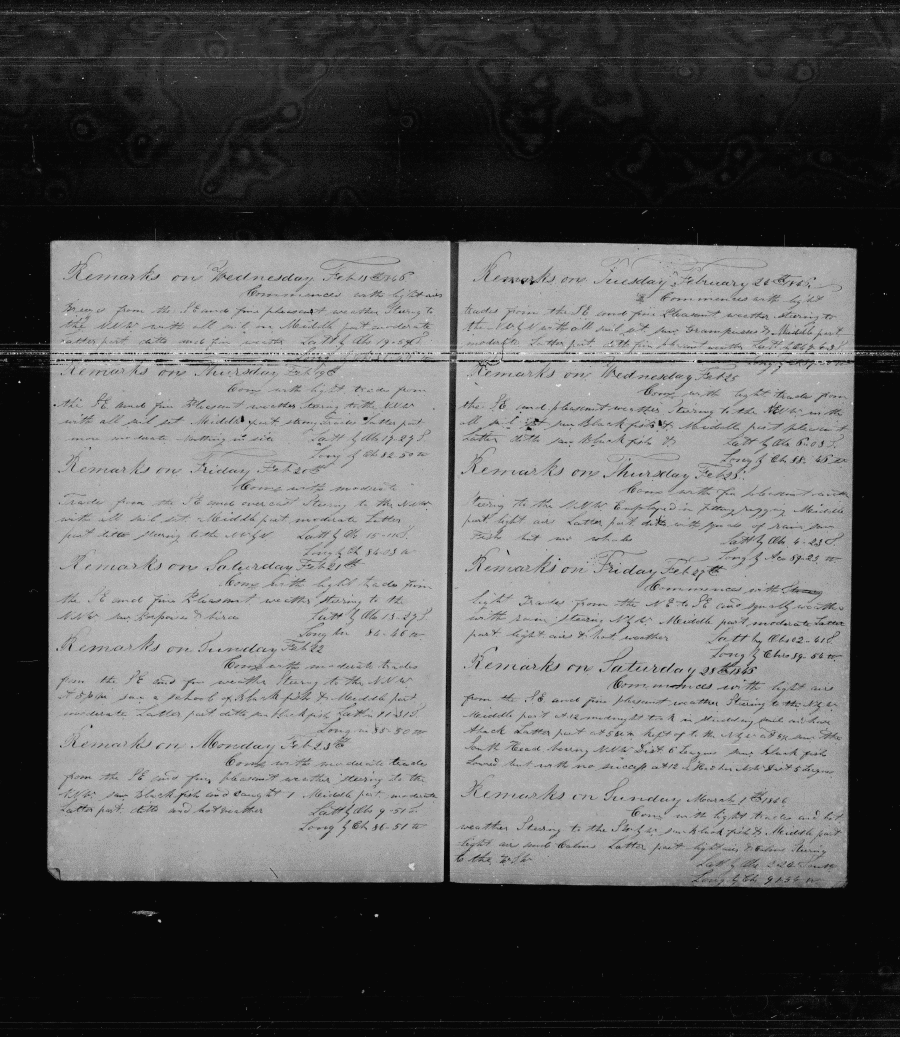 Remarks on Wednesday Feb 18th 1846
Commences with light airs
from the SE and fine pleasant weather Stering to
the NNW with all sail on Middle part moderate
Latter part ditto and fine weather Latt by Obs 19-59 S
Remarks on Thursday Feb 19th
Coms with light trades from
the SE and fine Pleasant weather Stering to the NNW
with all sail set Middle part strong trades Latter part
more moderate nothing in site Latt by Obs 17-29 S
Long by Ch 82-50 W
Remarks on Friday Feb 20th
Coms with moderate
Trades from the SE and overcast Stering to the NNW
with all sail set Middle part moderate Latter
part ditto stering to the NWW Latt by Obs 15-11 S
Long by Ch 84-23 W
Remarks on Saturday Feb 21th
Coms with light trades from
the SE and fine Pleasant weather stering to the
NNW saw Porpoises & birds Latt by Obs 13-27 S
Long in 84-46 W
Remarks on Sunday Feb 22
Coms with moderate trades
from the SE and fine weather Stering to the NNW
At 5 PM saw a school of Black fish & Middle part
moderate Latter part ditto saw black fish Latt in 11 31 S
Long in 85-30 W
Remarks on Monday Feb 23th
Coms with moderate trades
from the SE and fine pleasant weather stering to the
NNW saw Black fish and caught 1 Middle part moderate
Latter part ditto and hot weather Latt by Obs 9-51 S
Long by Ch 86-51 W
Remarks on Tuesday February 24th
Commences with light
trades from the SE and fine Pleasant weather stering to
the with all sail set saw Grampuses & Middle part
moderate Latter part ditto fine pleasant weather Latt by Obs
Remarks on Wednesday Feb 25
Coms with light trades from
the SE and pleasant weather Stering to the NNW with
all sail set saw Black fish & Middle part pleasant
Latter ditto saw Black fish & Latt by Obs 6-03 S
Long by Ch 88-45 W
Remarks on Thursday Feb 26
Coms with fine pleasant weather
stering to the NNW Employed in fitting rigging Middle
part light airs Latter part ditto with signs of rain saw
Fish but no whales Latt by Obs 4-23 S
Long by 89-23 W
Remarks on Friday Feb 27th
Commences with
light Trades from the NE to SE and squally weather
with rain stering Middle part moderate Latter
part light airs & hot weather Latt by Obs 2-41 S
Long by Chro 89-54 W
Remarks on Saturday 28th
Commences with light airs
from the SE and fine pleasant weather Stering to the
Middle part at 12 midnight took in studding sail
Latter part at 5 AM kept of to the saw the
South Head bearing NNW Dist 6 Leagues saw black fish
Lowed but with no success at 12 Dist 5 Leagues
Remarks on Sunday March 1th 1846
Coms with light trades and hot
weather Stering to the saw black fish & Middle part
light airs and Calms Latter part light airs & Calms stering
to the Latt by Obs South
Long by Ch 91-34 W